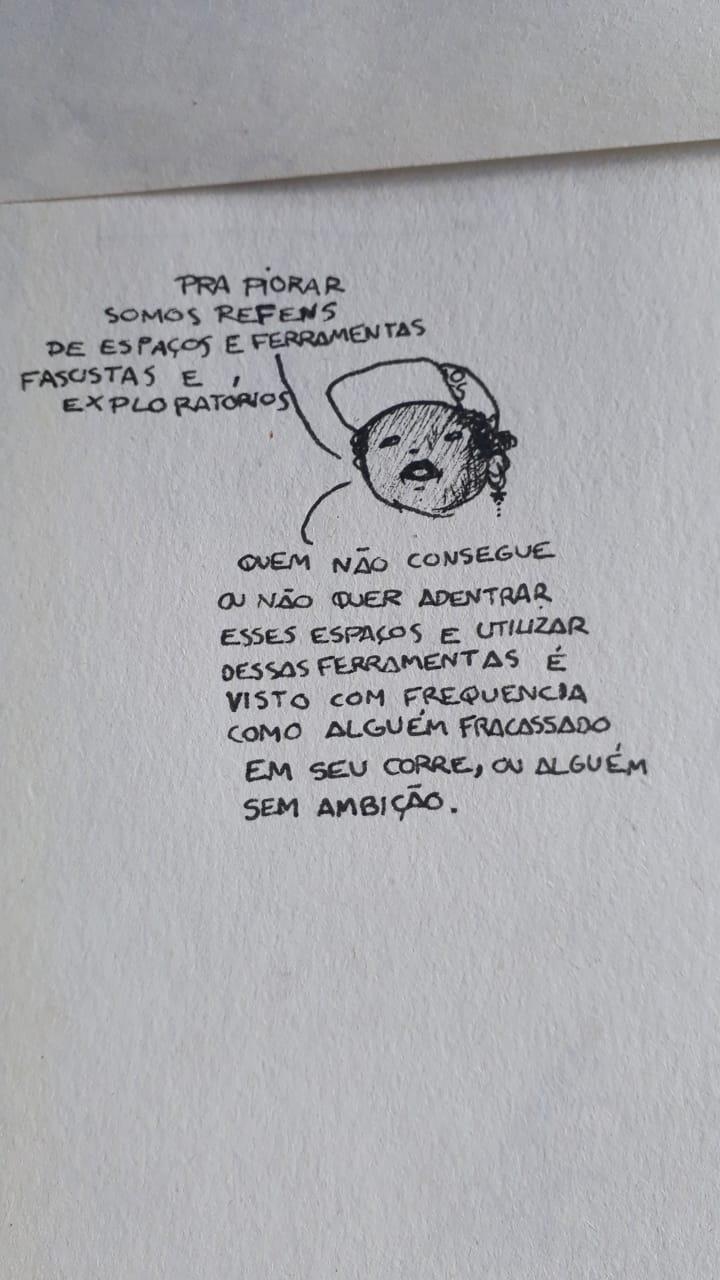 PRA PIORAR
SOMOS REFENS
DE ESPAÇOS E FERRAMENTAS
FASCISTAS E
EXPLORATÓRIOS
QUEM NÃO CONSEGUE
OU NÃO QUER ADENTRAR
ESSES ESPAÇOS E UTILIZAR
DESSAS FERRAMENTAS É
VISTO COM FREQUENCIA
COMO ALGUÉM FRACASSADO
EM SEU CORRE, OU ALGUÉM
SEM AMBIÇÃO.